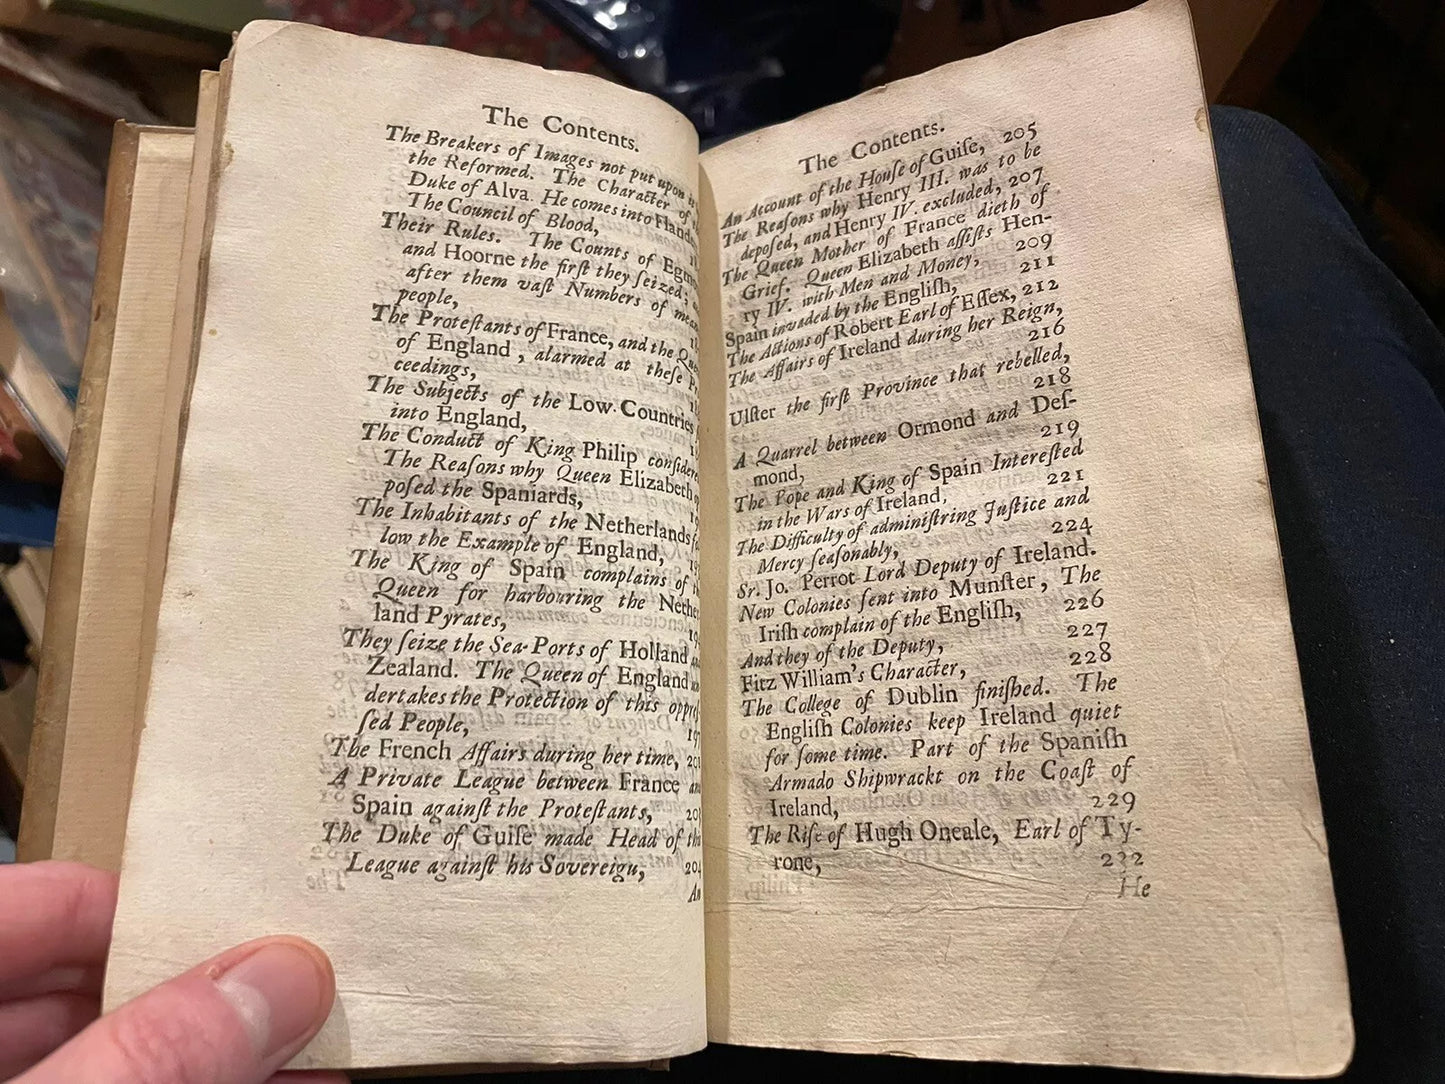 The Contents.
The Breakers of Images not put upon
the Reformed. The Character of
Duke of Alva. He comes into
The Council of Blood,
Their Rules. The Counts of
and Hoorne the firſt they ſeized;
after them vaſt Numbers of
people,
The Proteſtants of France, and the
of England, alarmed at theſe
ceedings,
The Subjects of the Low-Countries
into England,
The Conduct of King Philip
The Reaſons why Queen Elizabeth
poſed the Spaniards,
The Inhabitants of the Netherlands
low the Example of England,
The King of Spain complains of
Queen for harbouring the Nether
land Pyrates,
They ſeize the Sea-Ports of Holland
Zealand. The Queen of England
dertakes the Protection of this
ſed People,
The French Affairs during her time,
A Private League between France
Spain againſt the Proteſtants,
The Duke of Guiſe made Head of
League againſt his Sovereign, 204
An
The Contents.
An Account of the Houſe of Guiſe, 205
The Reaſons why Henry III. was to be
depoſed, and Henry IV. excluded, 207
The Queen Mother of France dieth of
Grief. Queen Elizabeth aſſiſts Hen-
ry IV. with Men and Money, 209
Spain invaded by the Engliſh, 211
The Actions of Robert Earl of Eſſex, 212
The Affairs of Ireland during her Reign,
216
Ulſter the firſt Province that rebelled,
218
A Quarrel between Ormond and Deſ-
mond, 219
The Pope and King of Spain Intereſted
in the Wars of Ireland, 221
The Difficulty of adminiſtring Juſtice and
Mercy ſeaſonably, 224
Sr. Jo. Perrot Lord Deputy of Ireland.
New Colonies ſent into Munſter, The
Iriſh complain of the Engliſh, 226
And they of the Deputy, 227
Fitz William's Character, 228
The College of Dublin finiſhed. The
Engliſh Colonies keep Ireland quiet
for ſome time. Part of the Spaniſh
Armado Shipwrackt on the Coaſt of
Ireland, 229
The Riſe of Hugh Oneale, Earl of Ty-
rone, 232
He